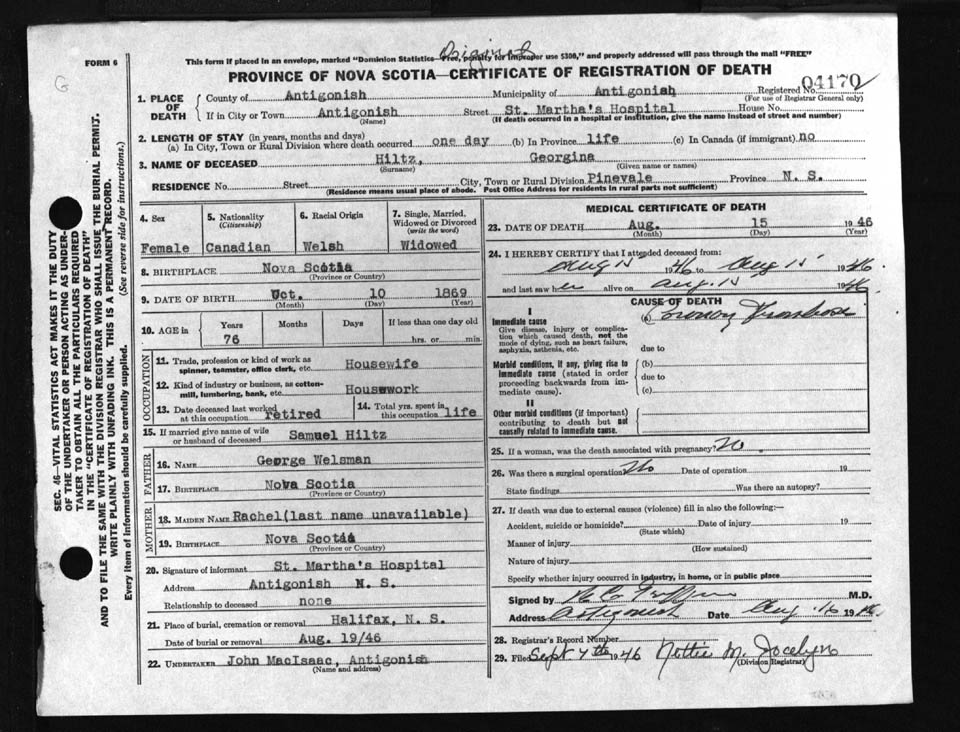 Original
FORM 6
This form if placed in an envelope, marked "Dominion Statistics—Free, penalty for improper use $300," and properly addressed will pass through the mail "FREE"
G
PROVINCE OF NOVA SCOTIA—CERTIFICATE OF REGISTRATION OF DEATH
04170
1. PLACE OF DEATH { County of Antigonish Municipality of Antigonish Registered No.
(For use of Registrar General only)
If in City or Town Antigonish Street St. Martha's Hospital House No.
(Name) (If death occurred in a hospital or institution, give the name instead of street and number)
2. LENGTH OF STAY (in years, months and days)
(a) In City, Town or Rural Division where death occurred one day (b) In Province life (c) In Canada (if immigrant) no
3. NAME OF DECEASED Hiltz, Georgina
(Surname) (Given name or names)
RESIDENCE No. Street City, Town or Rural Division Pinevale Province N. S.
(Residence means usual place of abode. Post Office Address for residents in rural parts not sufficient)
4. Sex Female
5. Nationality (Citizenship) Canadian
6. Racial Origin Welsh
7. Single, Married, Widowed or Divorced (write the word) Widowed
8. BIRTHPLACE Nova Scotia
(Province or Country)
9. DATE OF BIRTH Oct. 10 1869
(Month) (Day) (Year)
10. AGE in Years Months Days If less than one day old
76 hrs. or min.
OCCUPATION
11. Trade, profession or kind of work as spinner, teamster, office clerk, etc. Housewife
12. Kind of industry or business, as cotton-mill, lumbering, bank, etc. Housework
13. Date deceased last worked at this occupation retired
14. Total yrs. spent in this occupation life
15. If married give name of wife or husband of deceased Samuel Hiltz
FATHER
16. NAME George Welsman
17. BIRTHPLACE Nova Scotia
(Province or Country)
MOTHER
18. MAIDEN NAME Rachel(last name unavailable)
19. BIRTHPLACE Nova Scotia
(Province or Country)
20. Signature of informant St. Martha's Hospital
Address Antigonish N. S.
Relationship to deceased none
21. Place of burial, cremation or removal Halifax, N. S.
Date of burial or removal Aug. 19/46
22. UNDERTAKER John MacIsaac, Antigonish
(Name and address)
MEDICAL CERTIFICATE OF DEATH
23. DATE OF DEATH Aug. 15 1946
(Month) (Day) (Year)
24. I HEREBY CERTIFY that I attended deceased from:
Aug 15 1946 to Aug 15 1946
and last saw her alive on Aug. 15 1946
CAUSE OF DEATH
I
Immediate cause (a) Coronary Thrombosis
Give disease, injury or complication which caused death, not the mode of dying, such as heart failure, asphyxia, asthenia, etc.
due to
Morbid conditions, if any, giving rise to immediate cause (stated in order proceeding backwards from immediate cause).
(b)
due to
(c)
II
Other morbid conditions (if important) contributing to death but not causally related to immediate cause.
25. If a woman, was the death associated with pregnancy? No
26. Was there a surgical operation? No Date of operation 19
State findings Was there an autopsy?
27. If death was due to external causes (violence) fill in also the following:—
Accident, suicide or homicide? Date of injury 19
(State which)
Manner of injury
(How sustained)
Nature of injury
Specify whether injury occurred in industry, in home, or in public place
Signed by M.D.
Address Antigonish Date Aug 16 1946
28. Registrar's Record Number
29. Filed Sept 7th 1946 Nettie M. Jocelyn
(Division Registrar)
SEC. 46—VITAL STATISTICS ACT MAKES IT THE DUTY
OF THE UNDERTAKER OR PERSON ACTING AS UNDER-
TAKER TO OBTAIN ALL THE PARTICULARS REQUIRED
IN THE "CERTIFICATE OF REGISTRATION OF DEATH"
AND TO FILE THE SAME WITH THE DIVISION REGISTRAR WHO SHALL ISSUE THE BURIAL PERMIT.
WRITE PLAINLY WITH UNFADING INK. THIS IS A PERMANENT RECORD.
Every item of information should be carefully supplied. (See reverse side for instructions.)